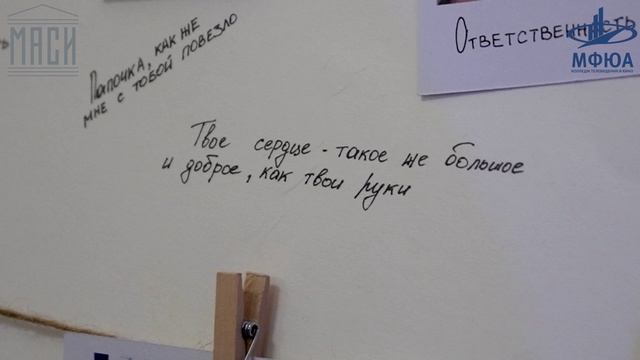 МАСИ
Папочка, как же
мне с тобой повезло
Ответственность
МФЮА
КОЛЛЕДЖ ТЕЛЕВИДЕНИЯ И КИНО
Твое сердце - такое же большое
и доброе, как твои руки